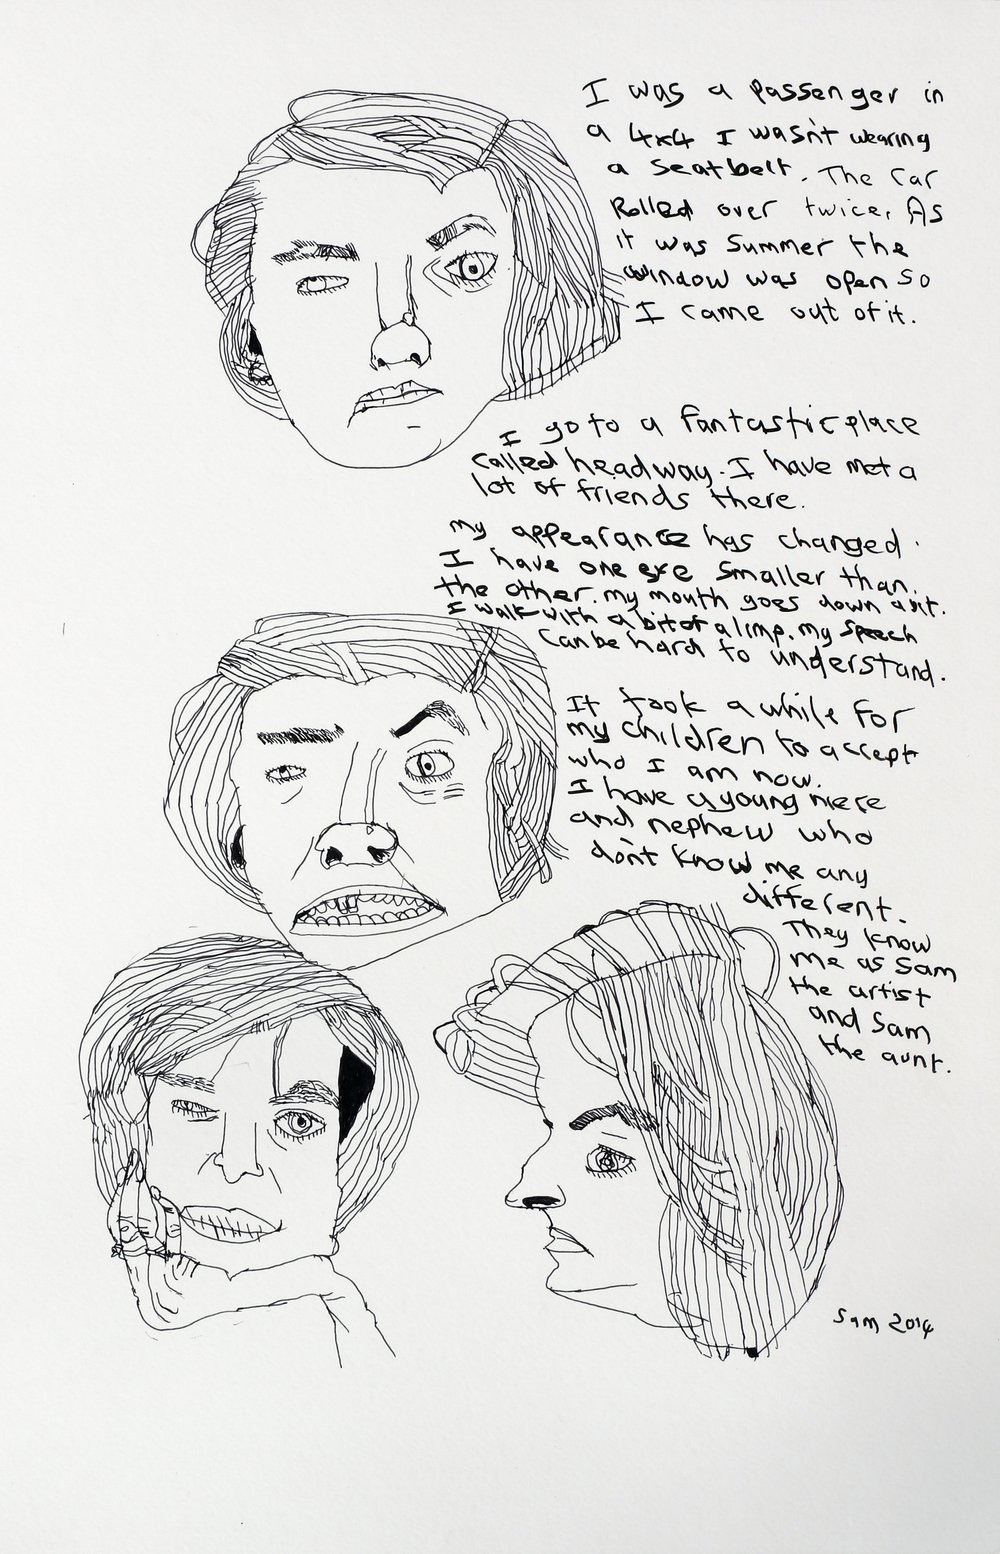 I was a passenger in
a 4x4 I wasn't wearing
a seatbelt. The car
Rolled over twice. As
it was summer the
window was open so
I came out of it.
I go to a fantastic place
called headway. I have met a
lot of friends there.
my appearance has changed.
I have one eye smaller than.
the other. my mouth goes down a bit.
I walk with a bit of a limp. my speech
can be hard to understand.
It took a while for
my children to accept
who I am now.
I have a young niece
and nephew who
don't know me any
different.
They know
me as Sam
the artist
and Sam
the aunt.
Sam 2014